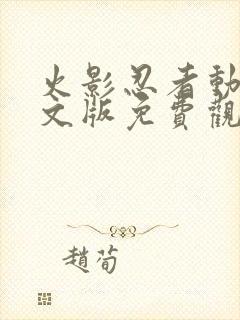 火影忍者動
文版免費觀
趙荀